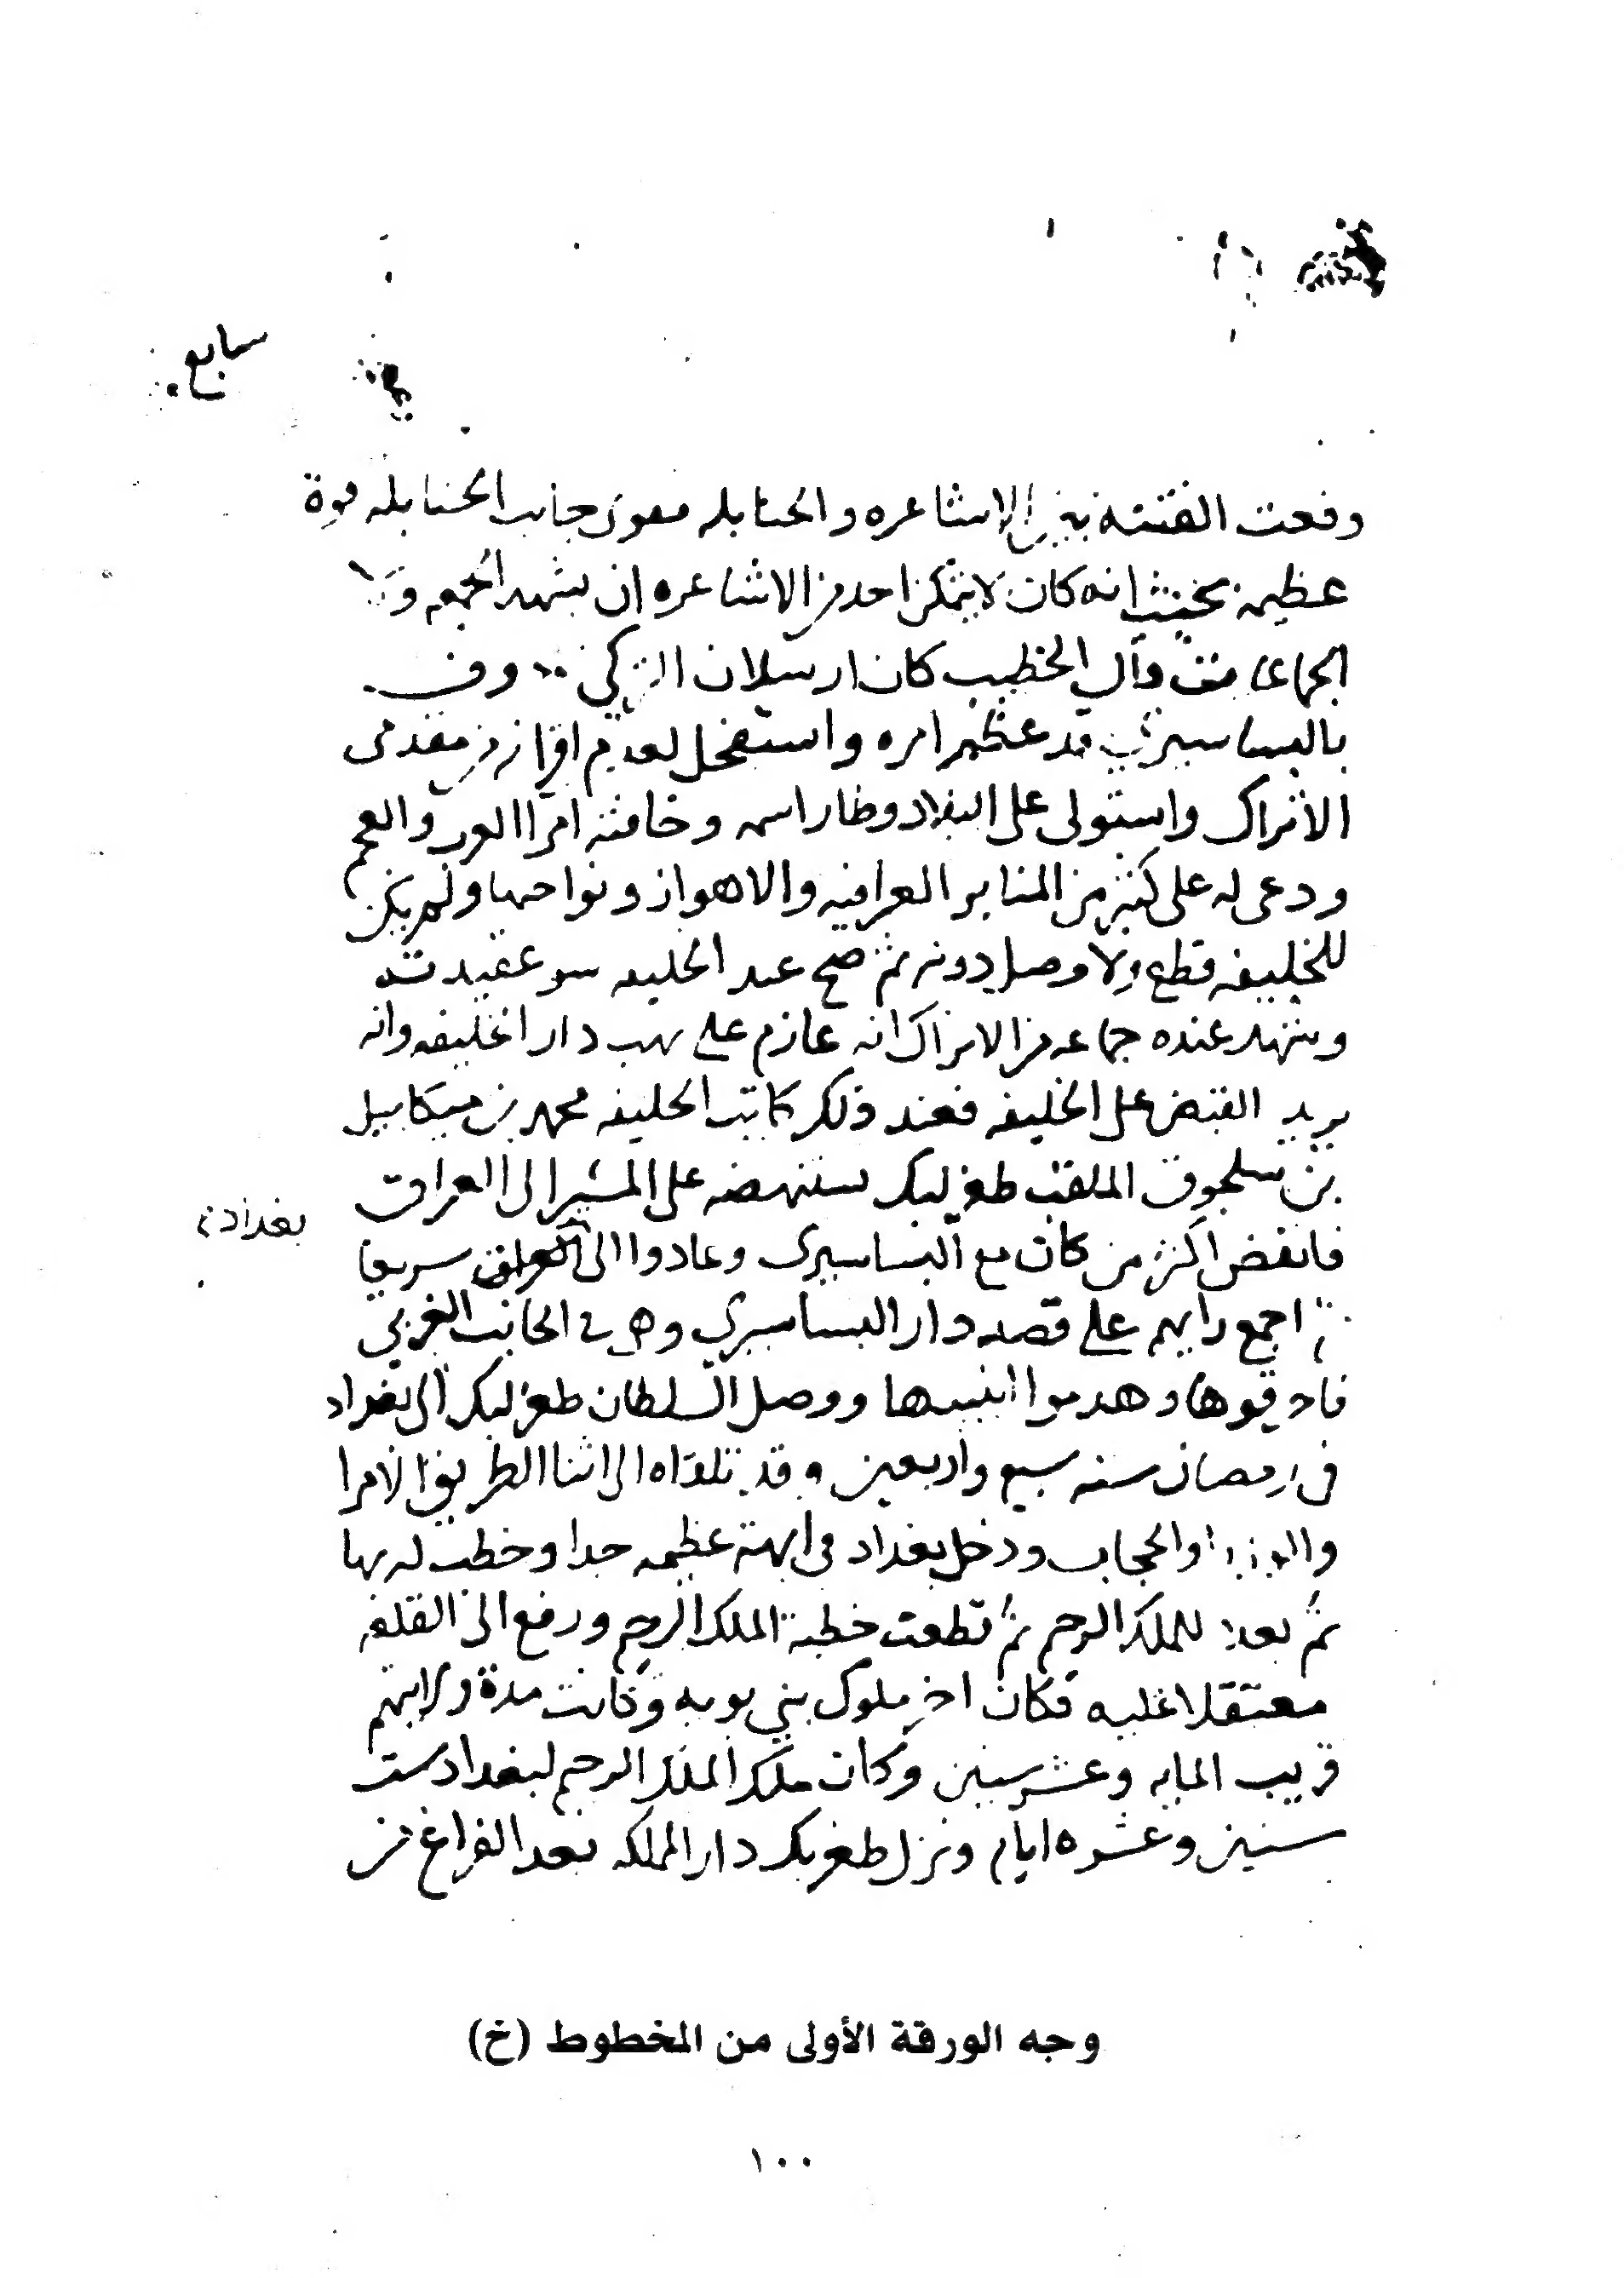 سابع
وقعت الفتنة بين الاشاعره والحنابله فقوى جانب الحنابله قوة
عظيمة بحيث انه كان لا يتمكن احد من الاشاعره ان يشهد الجمعه ولا
الجماعات قال الخطيب كان ارسلان التركي
بالبساسيري قد عظم امره واستفحل لعدم اقرانه من مقدمى
الاتراك واستولى على البلاد وطار اسمه وخافته امرا العرب والعجم
ودعى له على كثير من المنابر العراقيه والاهواز ونواحيها ولم يكن
للخليفه قطع ولا وصل دونه ثم صح عند الخليفه سو عقيدته
وشهد عنده جماعه من الاتراك انه عازم على نهب دار الخليفه وانه
يريد القبض على الخليفه فعند ذلك كاتب الخليفه محمد بن ميكاييل
بن سلجوق الملقب طغرلبك يستنهضه على المسير الى العراق
فانفض اكثر من كان مع البساسيرى وعادوا الى العراق سريعا
بغداد
ثم اجمع رايهم على قصد دار البساسيري وهي في الجانب الغربي
فاحرقوها وهدموا ابنيتها ووصل السلطان طغرلبك الى بغداد
في رمضان سنه سبع واربعين وقد تلقاه الى اثنا الطريق الامرا
والوزرا والحجاب ودخل بغداد في ابهة عظيمه جدا وخطب له بها
ثم بعده للملك الرحيم ثم قطعت خطبة الملك الرحيم ورفع الى القلعه
معتقلا عليه فكان اخر ملوك بني بويه وكانت مدة ولايتهم
قريب المايه وعشر سنين وكان ملك الملك الرحيم لبغداد ست
سنين وعشره ايام ونزل طغربك دار المملكه بعد الفراغ من
وجه الورقة الأولى من المخطوط (خ)
١٠٠